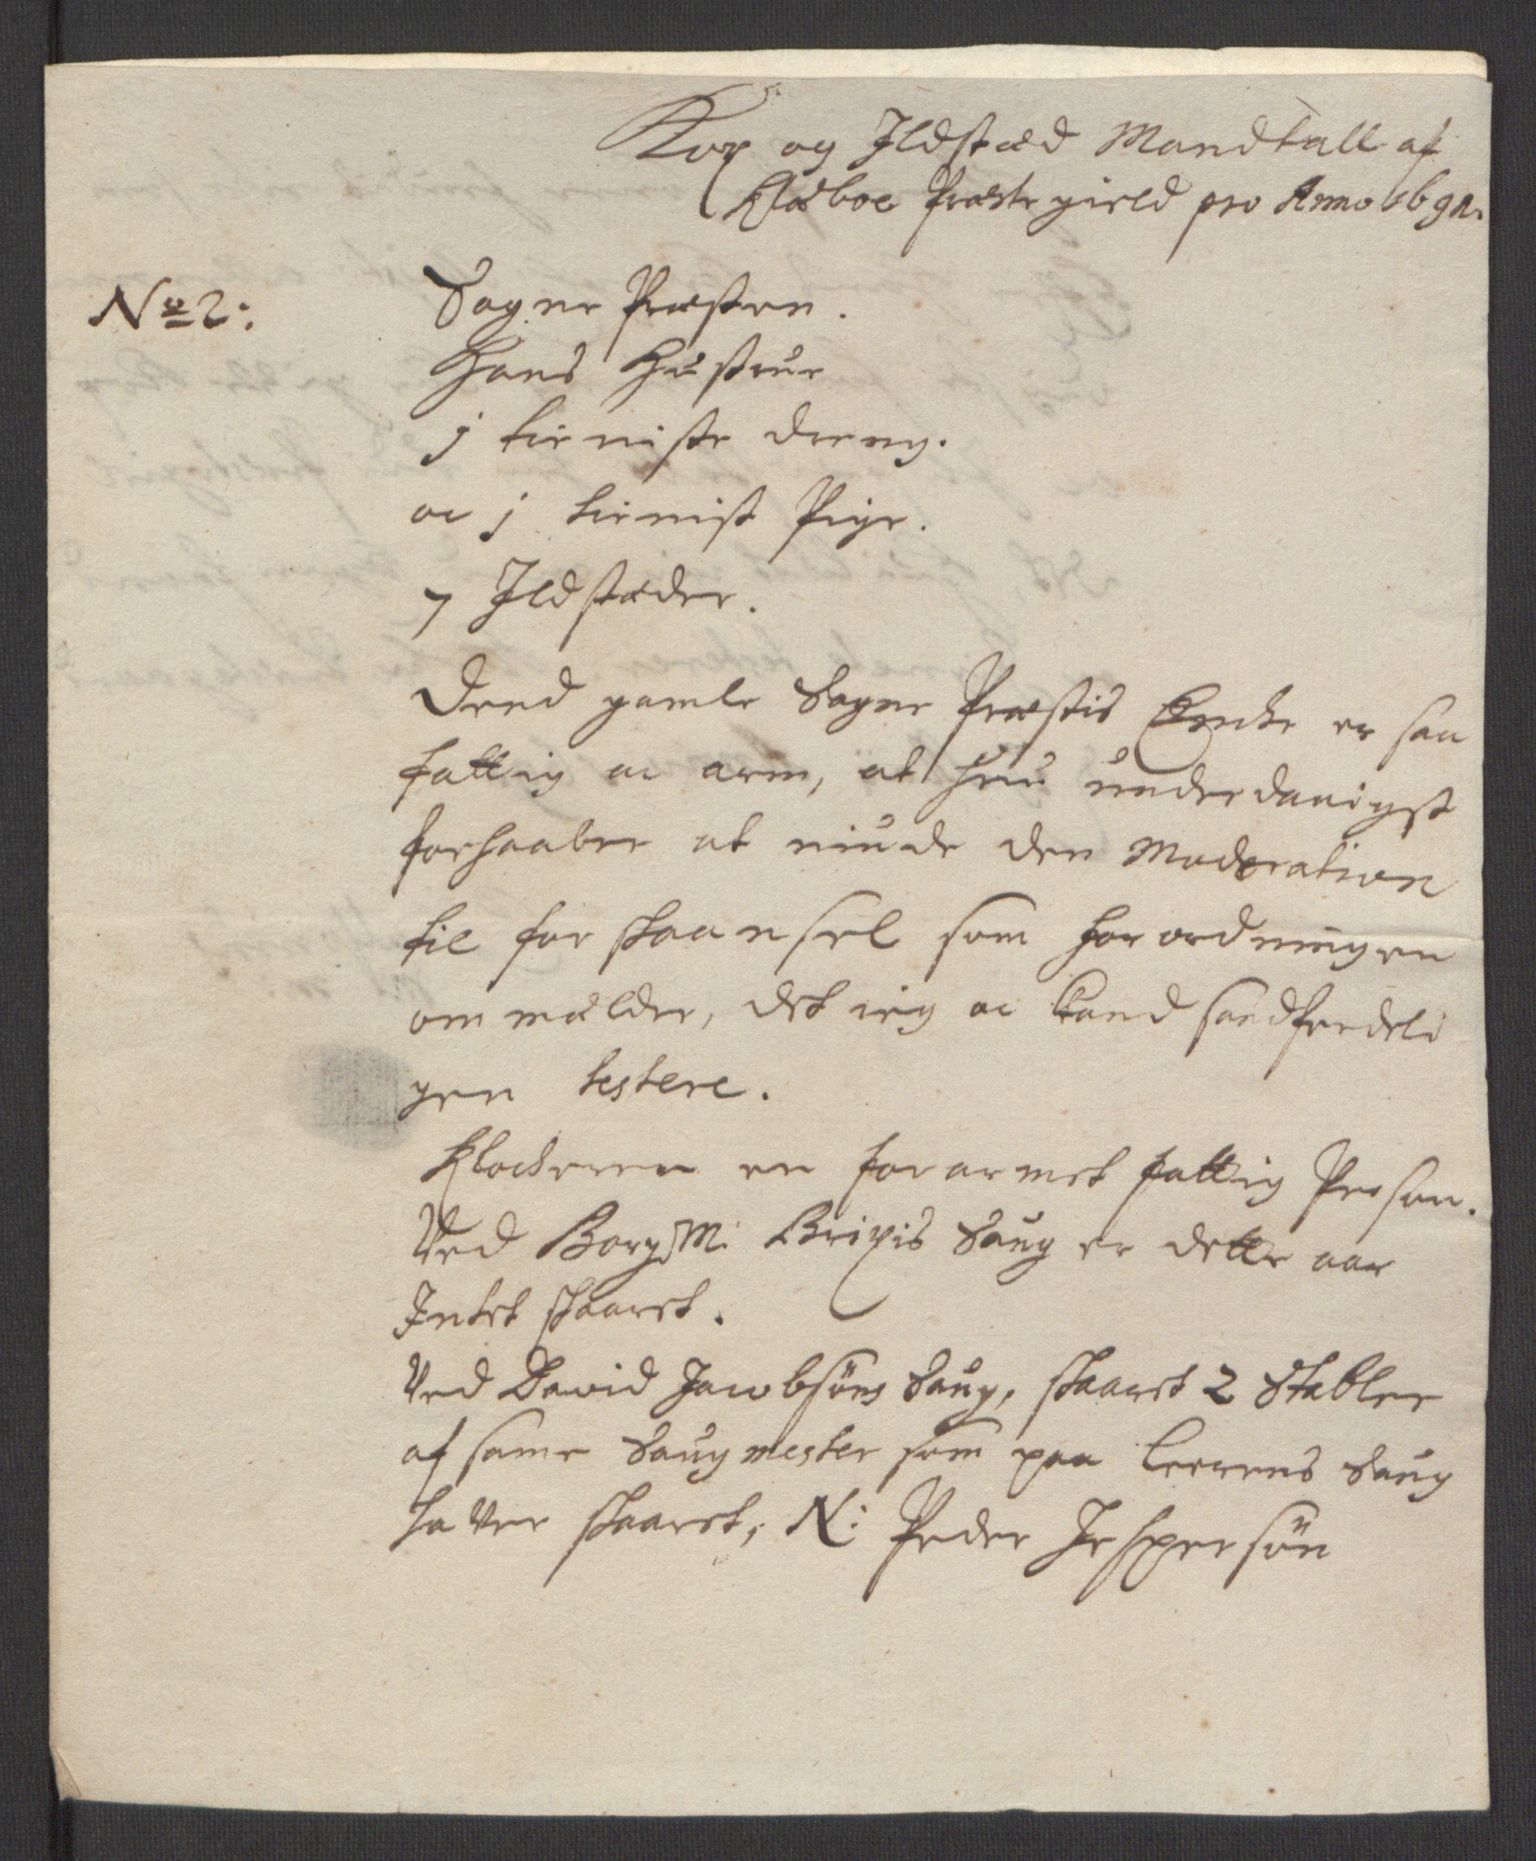 Kop og Ildstæd Mandtall af
Klæboe Præstegield pro Anno 169
No 2:
Sogne Præsten.
Hans Hustrue
j tieniste dreng.
oc j tienist Pige.
7 Ildstæder.
Dend gamle Sogne Præstis Encke er saa
fattig oc arm, at hun underdanigst
forhaaber at niude den Moderation
til forskaansel som forordningen
ommælder, det ieg oc kand sandferdeli
gen testere.
Klockeren en forarmet fattig Person.
Ved Borgm: Brixis Saug er dette aar
Intet skaaret.
Ved David Jacobsöns Saug, skaaret 2 Stabler
af same Saugmester som paa Leerens Saug
haver skaaret, N: Peder Jespersön